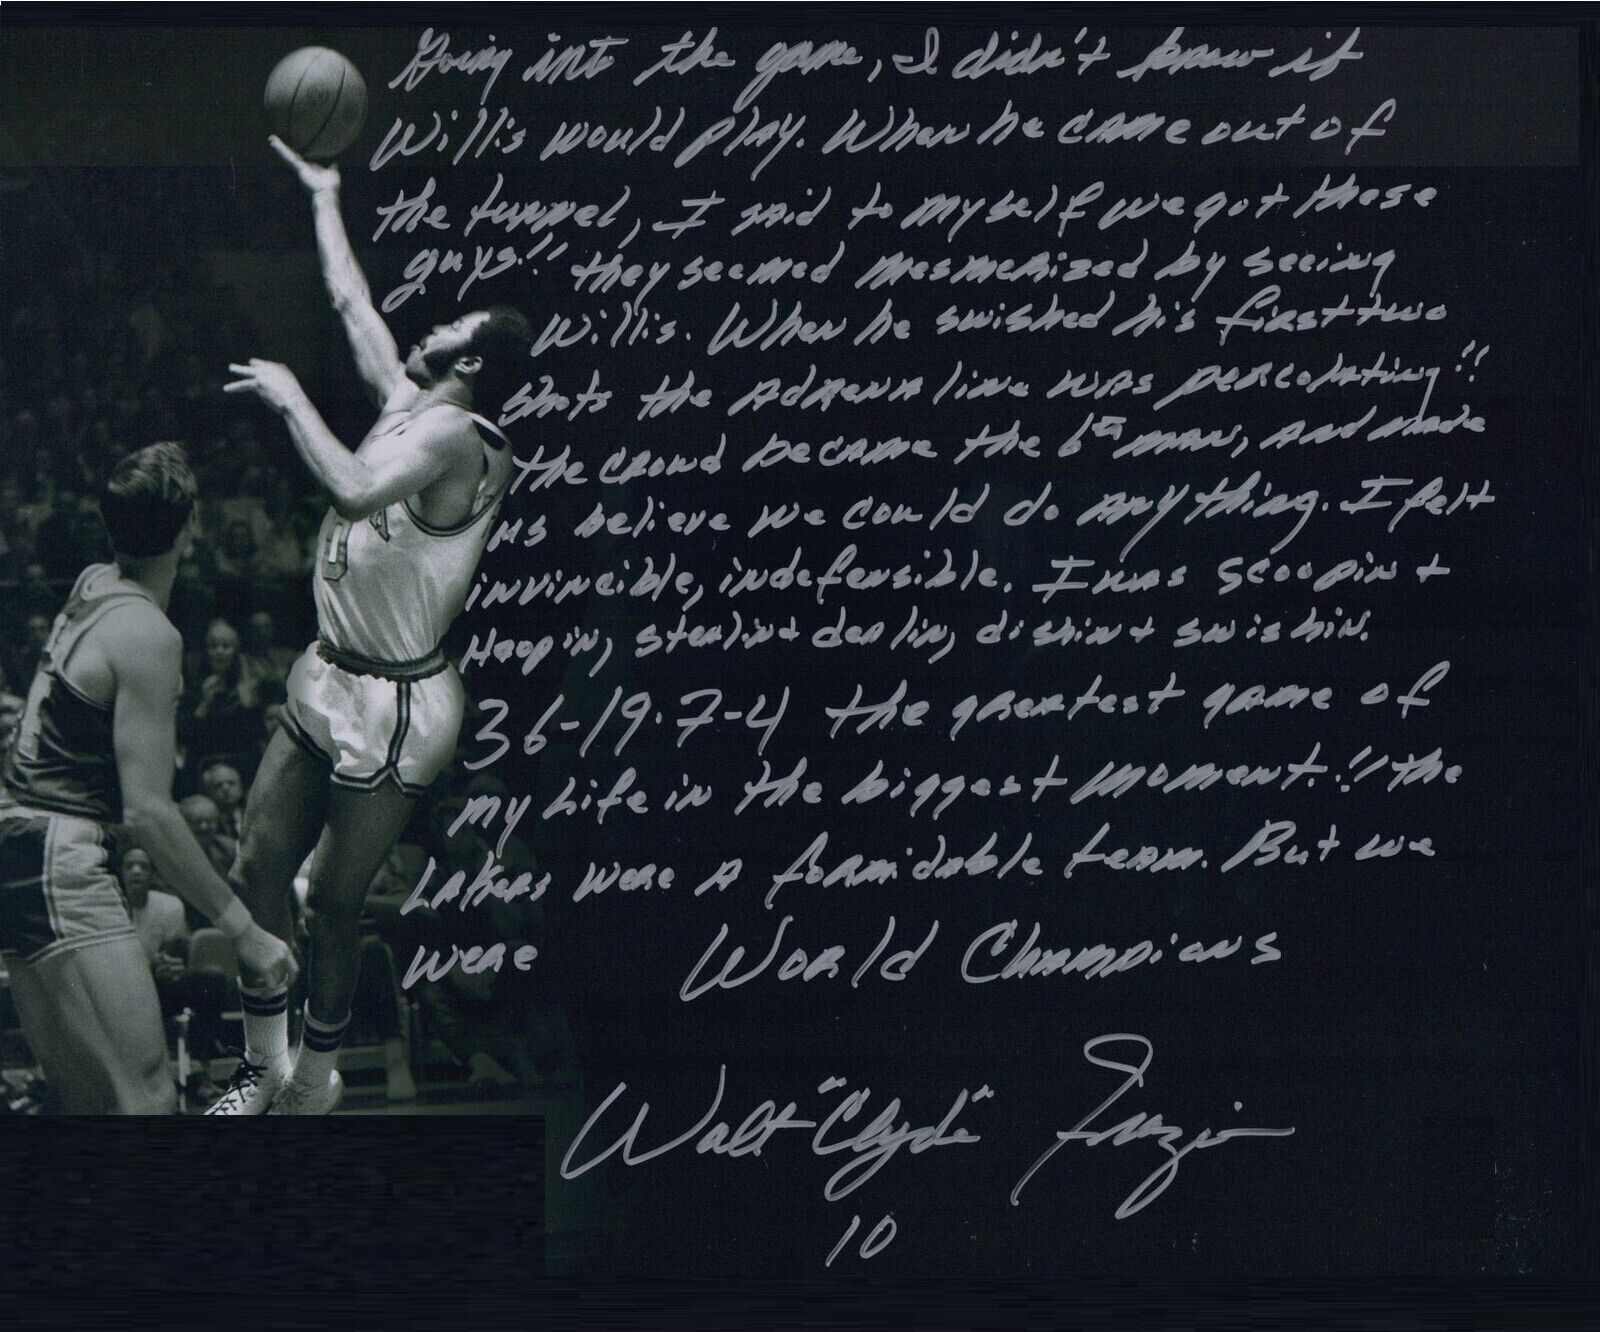 Going into the game, I didn't know if
Willis would play. When he came out of
the tunnel, I said to myself we got these
guys!! they seemed mesmerized by seeing
Willis. When he swished his first two
shots the Adrenaline was percolating!!
the crowd became the 6th man, and made
us believe we could do anything. I felt
invincible, indefensible. I was scoopin +
Hoopin, stealin + dealin, dishin + swishin.
36-19-7-4 the greatest game of
my Life in the biggest moment!! the
Lakers were A formidable team. But we
were World Champions
Walt "Clyde" Frazier
10